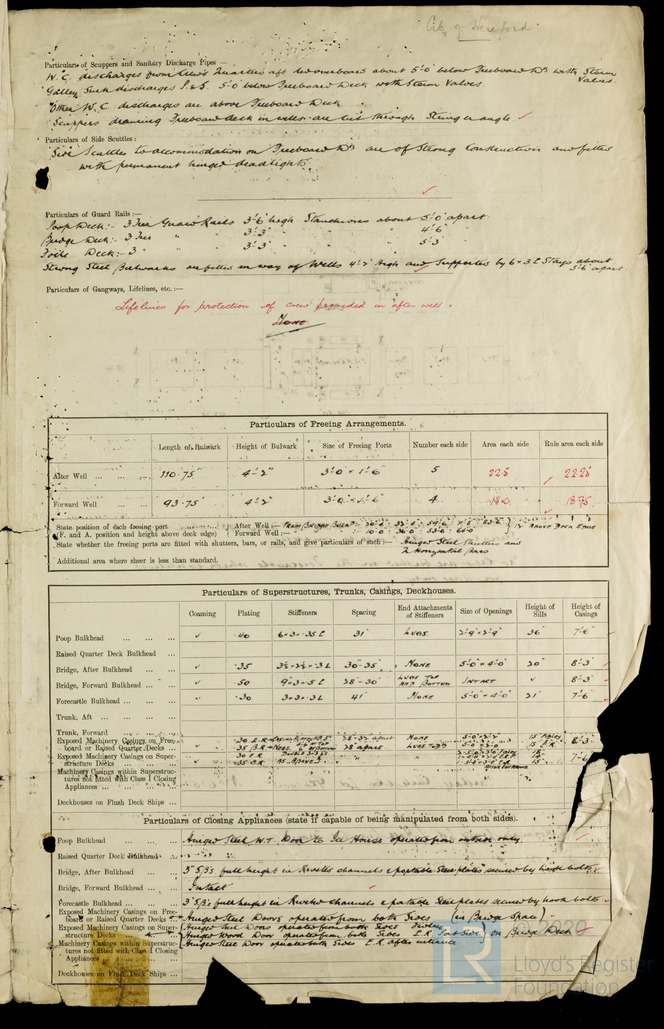 City of Hereford
Particulars of Scuppers and Sanitary Discharge Pipes —
W.C. discharges from Crew's Quarters aft overboard about 5'-0" below Freeboard Dk with Storm Valves
Galley Sink discharges P. & S. 5-0 below Freeboard Deck with Storm Valves
Other W.C discharges are above Freeboard Deck
Scuppers draining Freeboard deck in wells are led through Stringer angle ✓
Particulars of Side Scuttles:
Side Scuttles to accommodation on Freeboard Dk are of Strong Construction and fitted
with permanent hinged deadlights.
Particulars of Guard Rails:—
Poop Deck:- 3 Tier Guard Rails 3'-6" high Stanchions about 5'-0" apart
Bridge Deck:- 3 Tier " 3'-3" " 4'-6"
Fo'cle Deck:- 3 " 3'-3" " 5-3
Strong Steel Bulwarks are fitted in way of Wells 4'-2" high and Supported by 6×3 L Stays about 5'-6 apart
Particulars of Gangways, Lifelines, etc.:—
Lifelines for protection of crew provided in after well.
None
Particulars of Freeing Arrangements.
Length of Bulwark Height of Bulwark Size of Freeing Ports Number each side Area each side Rule area each side
After Well ... ... ... 110.75' 4'-2" 3'-0" × 1'-6" 5 22.5 22.25
Forward Well ... 93.75' 4'-2" 3'-0" × 1'-6" 4 18.0 18.75
State position of each freeing port ... ... After Well :— From Bridge Bulk?
(F. and A. position and height above deck edge) Forward Well :— above Deck Edge
State whether the freeing ports are fitted with shutters, bars, or rails, and give particulars of such :— Hinged Steel Shutters and
2 Horizontal bars
Additional area where sheer is less than standard.
Particulars of Superstructures, Trunks, Casings, Deckhouses.
Coaming Plating Stiffeners Spacing End Attachments of Stiffeners Size of Openings Height of Sills Height of Casings
Poop Bulkhead ... ... ... ✓ .40 6×3×.35 L 31" Lugs 2'-9" × 2'-9" 36" 7'-6"
Raised Quarter Deck Bulkhead ...
Bridge, After Bulkhead ... ... ✓ .35 3½×2½×.3 L 30"-35" None 5'-0" × 4'-0" 20" 8'-3"
Bridge, Forward Bulkhead ... ✓ .50 9×3×.5 L 28"-30" Lugs Top and Bottom Intact ✓ 8'-3"
Forecastle Bulkhead ... ... ✓ .30 3×3×.3 L 41" None 5'-0" × 4'-0" 21" 7-6
Trunk, Aft ... ... ... ...
Trunk, Forward ... ... ...
Exposed Machinery Casings on Freeboard or Raised Quarter Decks ... None 8'-3"
Exposed Machinery Casings on Superstructure Decks ... 7'-6
Machinery Casings within Superstructures not fitted with Class 1 Closing Appliances ... ... ...
Deckhouses on Flush Deck Ships ...
Particulars of Closing Appliances (state if capable of being manipulated from both sides).
Poop Bulkhead ... ... ... Hinged Steel W.T. Door to Ice House operated from outside only
Raised Quarter Deck Bulkhead ...
Bridge, After Bulkhead ... ... full height in Rivetted channels & portable Steel plates secured by hook bolts
Bridge, Forward Bulkhead ... ... Intact
Forecastle Bulkhead ... ... full height in Riveted channels & portable Steel plates secured by hook bolts
Exposed Machinery Casings on Freeboard or Raised Quarter Decks Hinged Steel Doors operated from both Sides (in Bridge Space)
Exposed Machinery Casings on Superstructure Decks ... Hinged Steel Doors operated from both Sides
Hinged Wood Door operated from both Sides E.R. Port side on Bridge Deck
Machinery Casings within Superstructures not fitted with Class 1 Closing Appliances ... Hinged Steel Door operated both Sides E.R. after entrance
Deckhouses on Flush Deck Ships ...
© 2020
LR
Lloyd's Register
Foundation